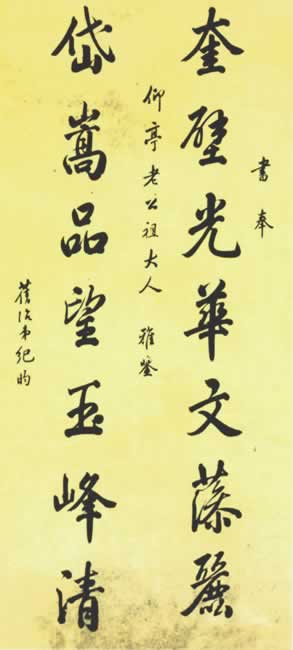 書奉
奎壁光華文藻麗
仰亭老公祖大人 雅鋻
岱嵩品望玉峰清
舊治弟紀昀